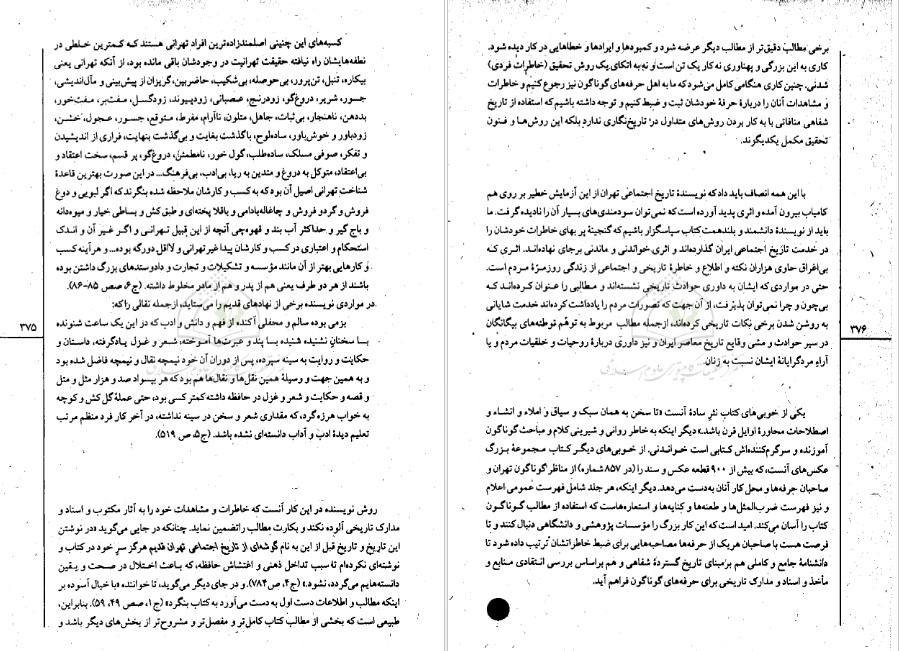 کسبه‌های این چنینی اصلمندزاده‌ترین افراد تهرانی هستند که کمترین خلطی در
نطفه‌هایشان راه نیافته حقیقت تهرانیت در وجودشان باقی مانده بود، از آنکه تهرانی یعنی
بیکاره، تنبل، تن‌پرور، بی‌حوصله، بی‌شکیب، حاضربین، گریزان از پیش‌بینی و مآل‌اندیشی،
جسور، شریر، دروغ‌گو، زودرنج، عصبانی، زودپیوند، زودگسل، مفت‌بر، مفت‌خور،
بددهن، ناهنجار، بی‌ثبات، جاهل، متلون، ناآرام، مفرط، متوقع، جسور، عجول، خشن،
زودباور و خوش‌باور، ساده‌لوح، باگذشت بغایت و بی‌گذشت بنهایت، فراری از اندیشیدن
و تفکر، صوفی مسلک، ساده‌طلب، گول خور، نامطمئن، دروغ‌گو، پر قسم، سخت اعتقاد و
بی‌اعتقاد، متوکل به دروغ و متدین به ریا، بی‌ادب، بی‌فرهنگ... در این صورت بهترین قاعدهٔ
شناخت تهرانی اصیل آن بود که به کسب و کارشان ملاحظه شده بنگرند که اگر لبویی و دوغ
فروش و گردو فروش و چاغاله‌بادامی و باقلا پخته‌ای و طبق کش و بساطی خیار و میوه‌دانه
و باج گیر و حداکثر آب بند و قهوه‌چی آنچه از این قبیل تهرانی و اگر غیر آن و اندک
استحکام و اعتباری در کسب و کارشان پیدا غیر تهرانی و لااقل دورگه بوده... و هرآینه کسب
و کارهایی بهتر از آن مانند مؤسسه و تشکیلات و تجارت و دادوستدهای بزرگ داشتن بوده
باشند از هر دو طرف یعنی هم از پدر و هم از مادر مخلوط داشته. (ج۶، صص ۸۵-۸۶)
در مواردی نویسنده برخی از نهادهای قدیم را می‌ستاید، ازجمله نقالی را که:
بزمی بوده سالم و محفلی آکنده از فهم و دانش و ادب که در این یک ساعت شنونده
با سخنان نشنیده شنیده با پند و عبرت‌ها آموخته، شعر و غزل یادگرفته، داستان و
حکایت و روایت به سینه سپرده، پس از دوران آن خود نیمچه نقال و نیمچه فاضل شده بود
و به همین جهت و وسیلهٔ همین نقل‌ها و نقال‌ها هم بود که هر بیسواد صد و هزار مثل و متل
و قصه و حکایت و شعر و غزل در حافظه داشته کمتر کسی بود، حتی عملهٔ گل کش و کوچه
به خواب هرزه گرد، که مقداری شعر و سخن در سینه نداشته، در آخر کار فرد منظم مرتب
تعلیم دیدهٔ ادب و آداب دانسته‌ای نشده باشد. (ج۵، ص ۵۱۹).
روش نویسنده در این کار آنست که خاطرات و مشاهدات خود را به آثار مکتوب و اسناد و
مدارک تاریخی آلوده نکند و بکارت مطالب را تضمین نماید. چنانکه در جایی می‌گوید «در نوشتن
این تاریخ و تاریخ قبل از این به نام گوشه‌ای از تاریخ اجتماعی تهران قدیم هرگز سر خود در کتاب و
نوشته‌ای نکرده‌ام تا سبب تداخل ذهنی و اغتشاش حافظه، که باعث اختلال در صحت و یقین
دانسته‌هایم می‌گردد، نشود.» (ج۴، ص۷۸۴). و در جای دیگر می‌گوید، تا خواننده «با خیال آسوده بر
اینکه مطالب و اطلاعات دست اول به دست می‌آورد به کتاب بنگرد» (ج۱، صص ۴۹، ۵۹). بنابراین،
طبیعی است که بخشی از مطالب کتاب کامل‌تر و مفصل‌تر و مشروح‌تر از بخش‌های دیگر باشد و
۳۷۵
برخی مطالب دقیق‌تر از مطالب دیگر عرضه شود و کمبودها و ایرادها و خطاهایی در کار دیده شود.
کاری به این بزرگی و پهناوری نه کار یک تن است و نه به اتکای یک روش تحقیق (خاطرات فردی)
شدنی. چنین کاری هنگامی کامل می‌شود که ما به اهل حرفه‌های گوناگون نیز رجوع کنیم و خاطرات
و مشاهدات آنان را دربارهٔ حرفهٔ خودشان ثبت و ضبط کنیم و توجه داشته باشیم که استفاده از تاریخ
شفاهی منافاتی با به کار بردن روش‌های متداول در تاریخ‌نگاری ندارد بلکه این روش‌ها و فنون
تحقیق مکمل یکدیگرند.
با این همه انصاف باید داد که نویسندهٔ تاریخ اجتماعی تهران از این آزمایش خطیر بر روی هم
کامیاب بیرون آمده و اثری پدید آورده است که نمی‌توان سودمندی‌های بسیار آن را نادیده گرفت. ما
باید از نویسندهٔ دانشمند و بلندهمت کتاب سپاسگزار باشیم که گنجینهٔ پر بهای خاطرات خودشان را
در خدمت تاریخ اجتماعی ایران گذارده‌اند و اثری خواندنی و ماندنی برجای نهاده‌اند. اثری که
بی‌اغراق حاوی هزاران نکته و اطلاع و خاطرهٔ تاریخی و اجتماعی از زندگی روزمرهٔ مردم است.
حتی در مواردی که ایشان به داوری حوادث تاریخی نشسته‌اند و مطالبی را عنوان کرده‌اند کـه
بی‌چون و چرا نمی‌توان پذیرفت، از آن جهت که تصورات مردم را یادداشت کرده‌اند خدمت شایانی
به روشن شدن برخی نکات تاریخی کرده‌اند، ازجمله مطالب مربوط به توهّم توطئه‌های بیگانگان
در سیر حوادث و مشی وقایع تاریخ معاصر ایران و نیز داوری دربارهٔ روحیات و خلقیات مردم و یا
آراء مردگرایانهٔ ایشان نسبت به زنان.
یکی از خوبی‌های کتاب نثر سادهٔ آنست «تا سخن به همان سبک و سیاق و املاء و انشاء و
اصطلاحات محاورهٔ اوایل قرن باشد.» دیگر اینکه به خاطر روانی و شیرینی کلام و مباحث گوناگون
آموزنده و سرگرم‌کننده‌اش کتابی است خواندنی. از خوبی‌های دیگر کتاب مجموعهٔ بزرگ
عکس‌های آنست، که بیش از ۹۰۰ قطعه عکس و سند را (در ۸۵۷ شماره) از مناظر گوناگون تهران و
صاحبان حرفه‌ها و محل کار آنان به‌دست می‌دهد. دیگر اینکه، هر جلد شامل فهرست عمومی اعلام
و نیز فهرست ضرب‌المثل‌ها و طعنه‌ها و کنایه‌ها و استعاره‌هاست که استفاده از مطالب گوناگون
کتاب را آسان می‌کند. امید است که این کار بزرگ را مؤسسات پژوهشی و دانشگاهی دنبال کنند و تا
فرصت هست با صاحبان هریک از حرفه‌ها مصاحبه‌هایی برای ضبط خاطراتشان ترتیب داده شود تا
دانشنامهٔ جامع و کاملی هم بر مبنای تاریخ گستردهٔ شفاهی و هم براساس بررسی انتقادی منابع و
مآخذ و اسناد و مدارک تاریخی برای حرفه‌های گوناگون فراهم آید.
۳۷۶